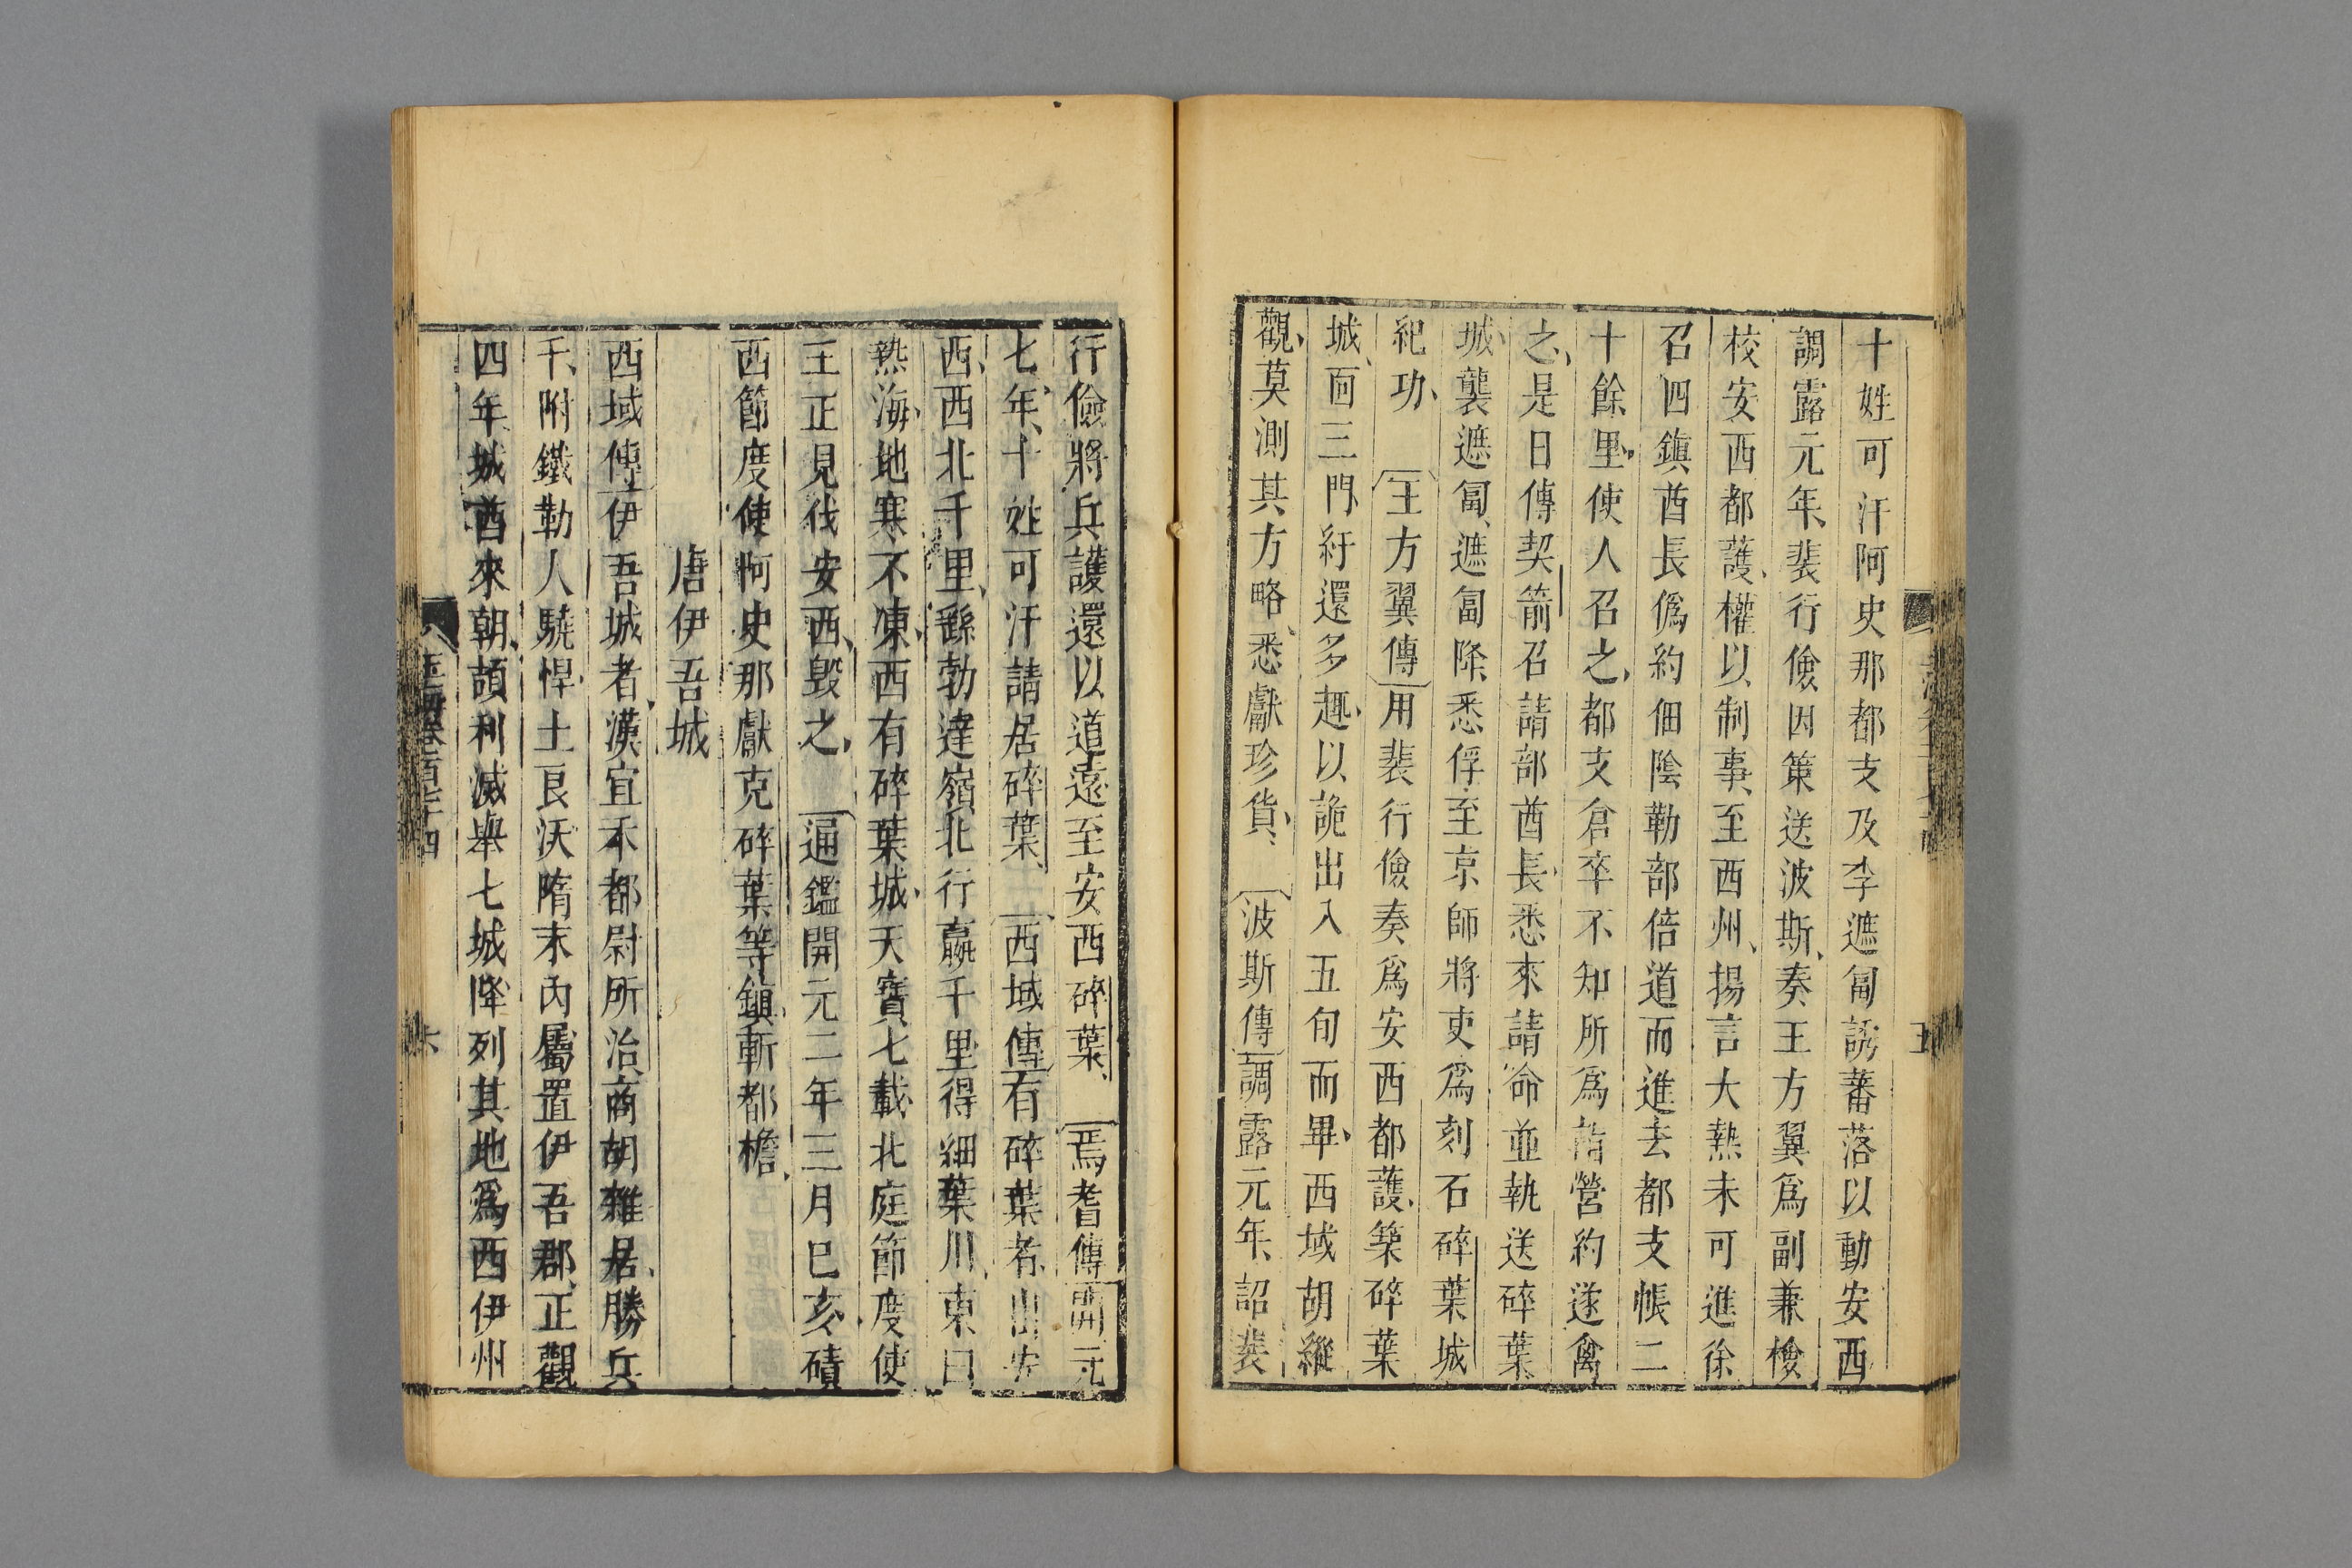 十姓可汗阿史那都支及李遮匐誘蕃落以動安西
調露元年裴行儉因策送波斯奏王方翼爲副兼檢
校安西都護權以制事至西州揚言大熱未可進徐
召四鎮酋長僞約佃陰勒部倍道而進去都支帳二
十餘里使人召之都支倉卒不知所爲詣營約遂禽
之是日傳契箭召請部酋長悉來請命並執送碎葉
城襲遮匐遮匐降悉俘至京師將吏爲刻石碎葉城
紀功 王方翼傳用裴行儉奏爲安西都護築碎葉
城面三門紆還多趣以詭出入五旬而畢西域胡縱
觀莫測其方略悉獻珍貨 波斯傳調露元年詔裴
五
行儉將兵護還以道遠至安西碎葉 焉耆傳開元
七年十姓可汗請居碎葉 西域傳有碎葉者出安
西西北千里䌛勃達嶺北行贏千里得細葉川東曰
熱海地寒不凍西有碎葉城天寶七載北庭節度使
王正見伐安西毀之 通鑑開元二年三月己亥磧
西節度使阿史那獻克碎葉等鎮斬都檐
唐伊吾城
西域傳伊吾城者漢宜禾都尉所治商胡雜居勝兵
千附鐵勒人驍悍土良沃隋末內屬置伊吾郡正觀
四年城酋來朝頡利滅舉七城降列其地爲西伊州
玉海卷一百七十四
六